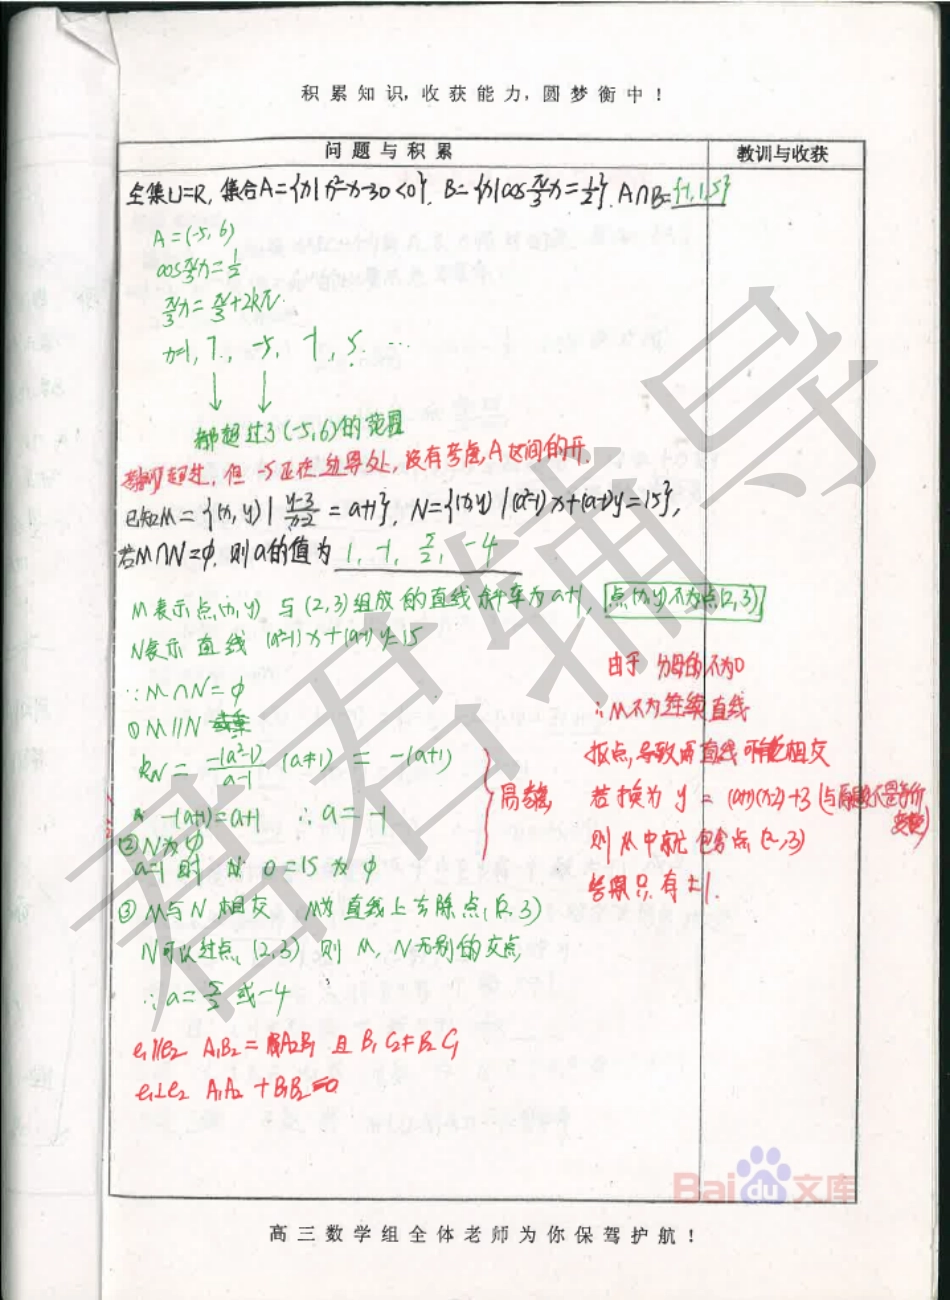 积累知识,收获能力,圆梦衡中!
问题与积累
教训与收获
全集U=R, 集合A={x|x²-x-30<0}, B={x|cos π/3 x=1/2}, A∩B={-1,1,5}
A=(-5,6)
cos π/3 x=1/2
π/3 x=π/3+2kπ.
x=1, 7, -5, -1, 5. ...
↓ ↓
都超过了(-5,6)的范围
超过, 但 -5正在边界处, 没有考虑A区间的开.
已知M={(x,y)| y-3/x-2 =a+1}, N={(x,y)|(a²-1)x+(a-1)y=15},
若M∩N=φ, 则a的值为 1, -1, 5/2, -4
M表示点(x,y) 与(2,3)组成的直线斜率为a+1, 点(x,y)不为点(2,3)
N表示直线 (a²-1)x+(a-1)y=15
∵M∩N=φ
① M//N
kN = -(a²-1)/a-1 (a≠1) = -(a+1)
-(a+1)=a+1 ∴a=-1
② N为φ
a=1时 0=15为φ
③ M与N相交 M为直线上去除点(2,3)
N可以过点(2,3) 则M,N无别的交点
∴a=5/2或-4
由于分母的不为0
∴M不为连续直线
抠点,导致两直线可能相交
若换为 y=(a+1)(x-2)+3 (与原题不是等价变换)
则M中就包含点(2,3)
答案只有±1.
ℓ₁//ℓ₂ A₁B₂=A₂B₁ 且 B₁C₂≠B₂C₁
ℓ₁⊥ℓ₂ A₁A₂+B₁B₂=0
君君辅导
Bai du 文库
高三数学组全体老师为你保驾护航!